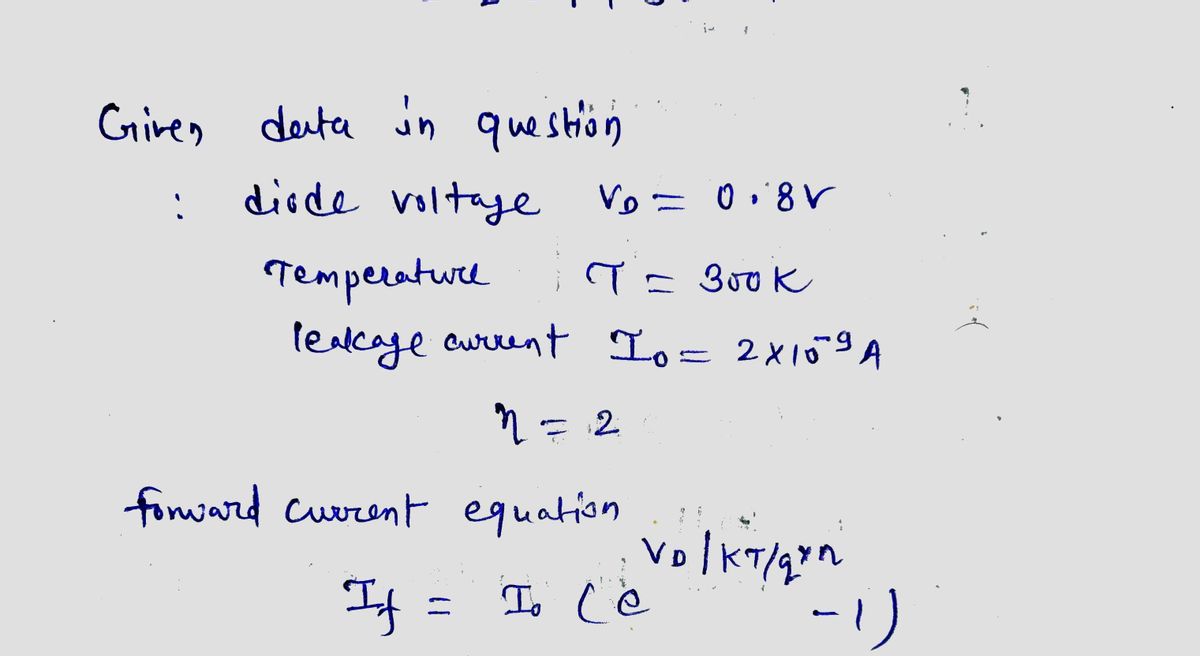 Given data in question
: diode voltage V_D = 0.8V
Temperature T = 300K
leakage current I_0 = 2×10^-9 A
η = 2
forward current equation
I_f = I_0 (e^{V_D/KT/q×η} -1)